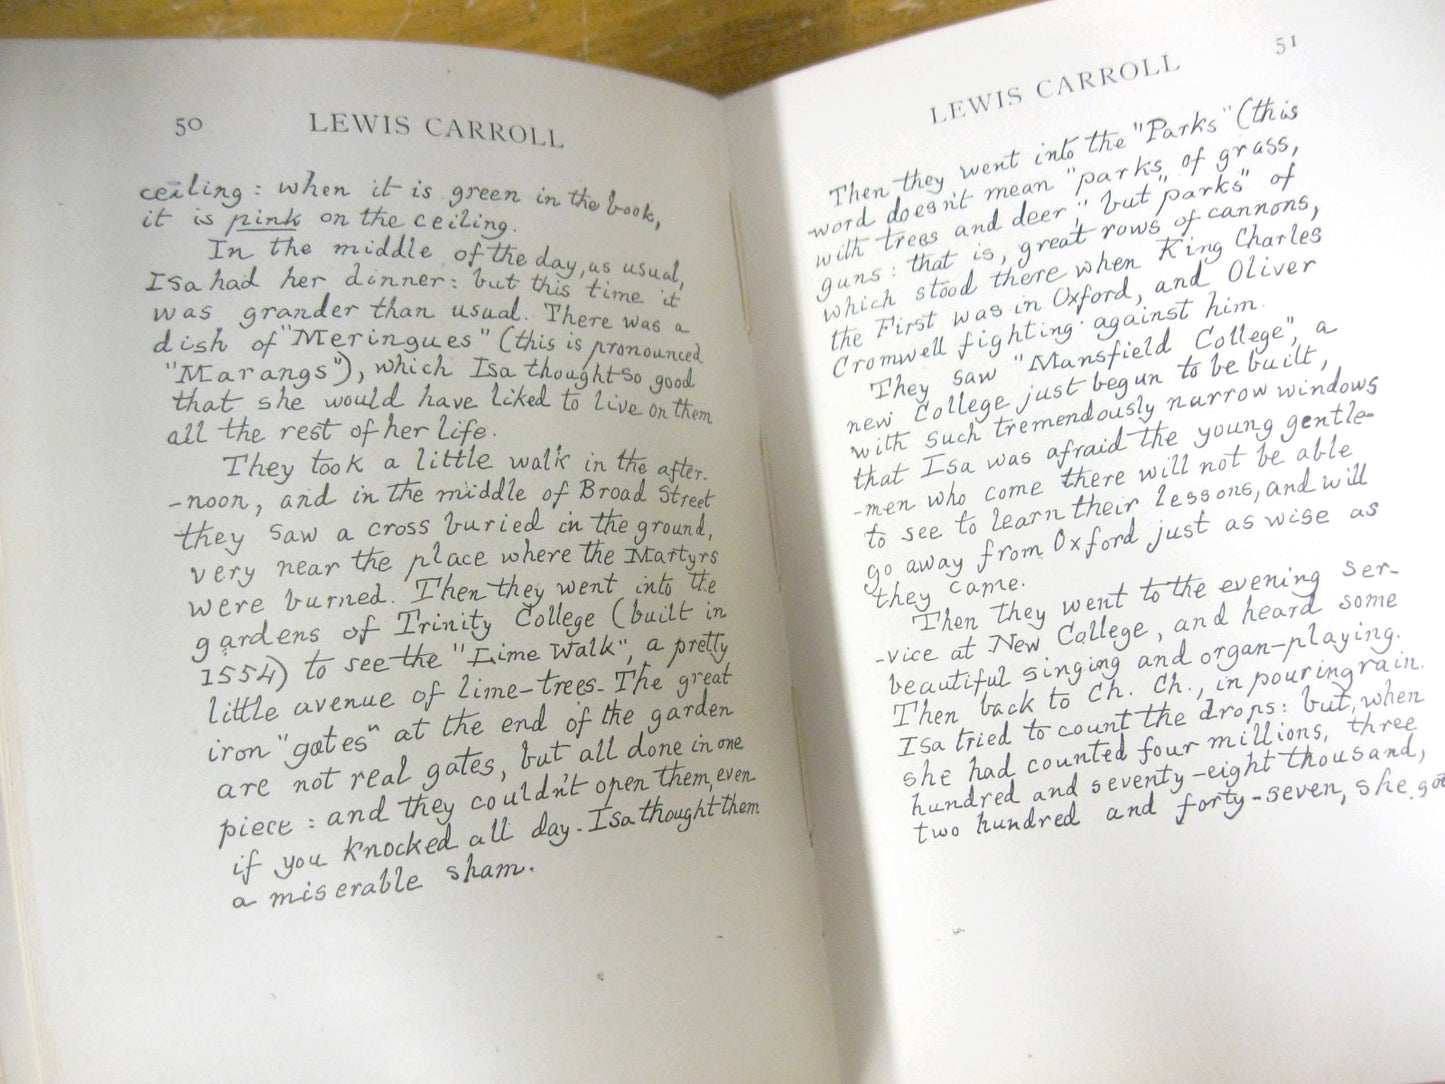 50
LEWIS CARROLL
ceiling: when it is green in the book,
it is pink on the ceiling.
In the middle of the day, as usual,
Isa had her dinner: but this time it
was grander than usual. There was a
dish of "Meringues" (this is pronounced
"Marangs"), which Isa thought so good
that she would have liked to live on them
all the rest of her life.
They took a little walk in the after-
-noon, and in the middle of Broad Street
they saw a cross buried in the ground,
very near the place where the Martyrs
were burned. Then they went into the
gardens of Trinity College (built in
1554) to see the "Lime Walk", a pretty
little avenue of lime-trees. The great
iron "gates" at the end of the garden
are not real gates, but all done in one
piece: and they couldn't open them, even
if you knocked all day. Isa thought them
a miserable sham.
LEWIS CARROLL
51
Then they went into the "Parks" (this
word doesn't mean "parks of grass,
with trees and deer," but "parks" of
guns: that is, great rows of cannons,
which stood there when King Charles
the First was in Oxford, and Oliver
Cromwell fighting against him.
They saw "Mansfield College", a
new College just begun to be built,
with such tremendously narrow windows
that Isa was afraid the young gentle-
-men who come there will not be able
to see to learn their lessons, and will
go away from Oxford just as wise as
they came.
Then they went to the evening ser-
-vice at New College, and heard some
beautiful singing and organ-playing.
Then back to Ch. Ch., in pouring rain.
Isa tried to count the drops: but, when
she had counted four millions, three
hundred and seventy-eight thousand,
two hundred and forty-seven, she got